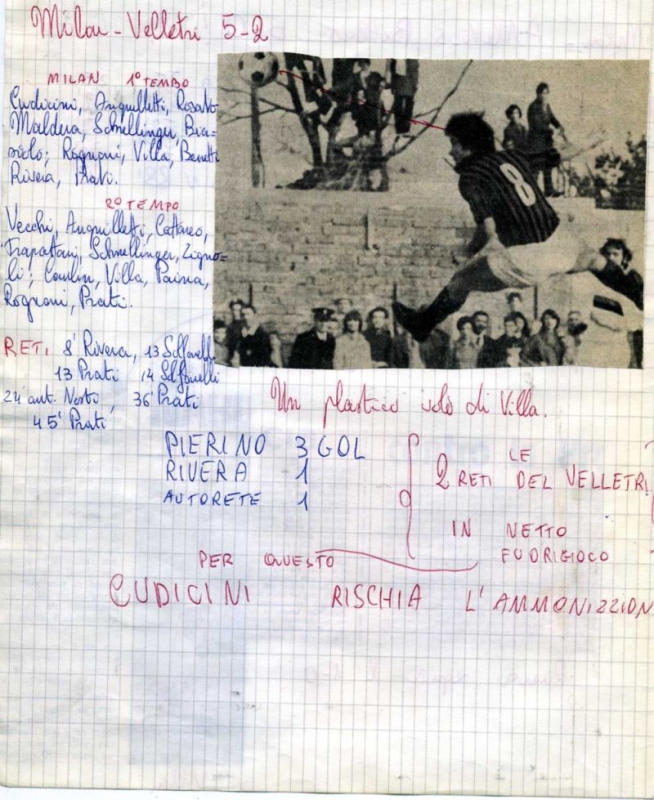 Milan - Velletri 5-2
MILAN 1° TEMPO
Cudicini, Anquilletti, Rosato
Maldera, Schnellinger, Bia-
siolo; Rognoni, Villa, Benetti
Rivera, Prati.
2° TEMPO
Vecchi, Anquilletti, Cattaneo,
Trapattoni, Schnellinger, Zigno-
li; Villa, Paina,
Rognoni, Prati.
RETI 8' Rivera, 13
13 Prati 14
24 aut. Nesti, 36' Prati
45' Prati
8
Un plastico volo di Villa.
PIERINO 3 GOL
RIVERA 1
AUTORETE 1
LE
2 RETI DEL VELLETRI
IN NETTO
FUORIGIOCO
PER QUESTO
CUDICINI RISCHIA L'AMMONIZZION